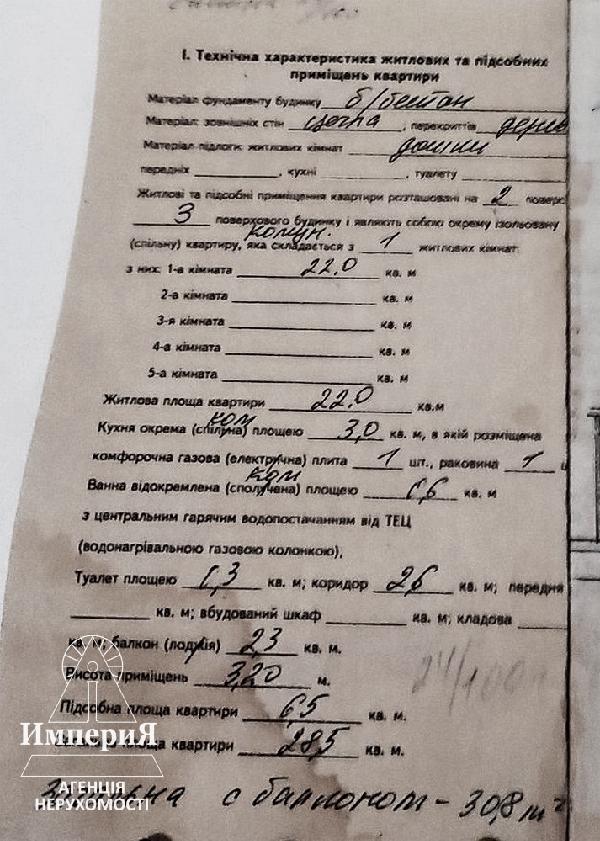 І. Технічна характеристика житлових та підсобних
приміщень квартири
Матеріал фундаменту будинку б/бетон
Матеріал: зовнішніх стін цегла, перекриттів дерев
Матеріал підлоги: житлових кімнат дошки
передніх , кухні , туалету
Житлові та підсобні приміщення квартири розташовані на 2 поверсі
3 поверхового будинку і являють собою окрему ізольовану
комун.
(спільну) квартиру, яка складається з 1 житлових кімнат
з них: 1-а кімната 22.0 кв. м
2-а кімната кв. м
3-я кімната кв. м
4-а кімната кв. м
5-а кімната кв. м
Житлова площа квартири 22.0 кв.м
Кухня окрема (спільна) площею 3,0 кв. м, в якій розміщена
ком
комфорочна газова (електрична) плита 1 шт., раковина 1
ком
Ванна відокремлена (сполучена) площею кв. м
з центральним гарячим водопостачанням від ТЕЦ
(водонагрівальною газовою колонкою),
Туалет площею кв. м; коридор 2,6 кв. м; передня
кв. м; вбудований шкаф кв. м; кладова
кв. м; балкон (лоджія) 2,3 кв. м.
Висота приміщень 3,20 м.
24/100
Підсобна площа квартири 6,5 кв. м.
площа квартири 28,5 кв. м.
з балконом - 30,8 м²
ИмпериЯ
АГЕНЦІЯ
НЕРУХОМОСТІ